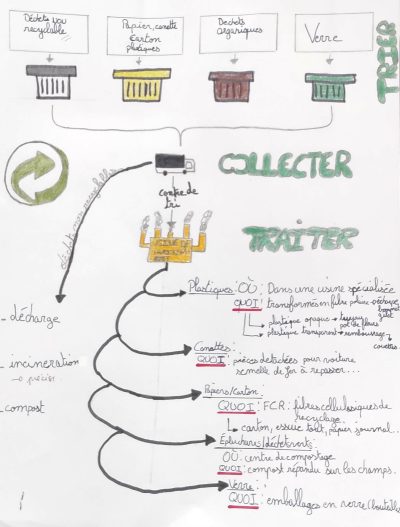 Déchets non
recyclable
Papier, canette
Carton
plastiques
Déchets
organiques
Verre
TRIER
COLLECTER
déchets non recyclable
Centre de
tri
TRAITER
USINE DE
Plastiques: OÙ: Dans une usine spécialisée
QUOI: transformés en fibre polaire
plastique opaque → tuyaux
pot de fleurs
plastique transparent → rembourrage
couettes
_ décharge
Canettes:
QUOI: pièces détachées pour voiture
semelle de fer à repasser...
_ incineration
→ préciser
Papiers/Carton:
QUOI: F.C.R: fibres cellulosiques de
recyclage.
↳ carton, essuie tout, papier journal...
_ compost
Épluchures/déchets verts:
OÙ: centre de compostage
QUOI: compost répandu sur les champs.
Verre:
QUOI: emballages en verre (bouteilles